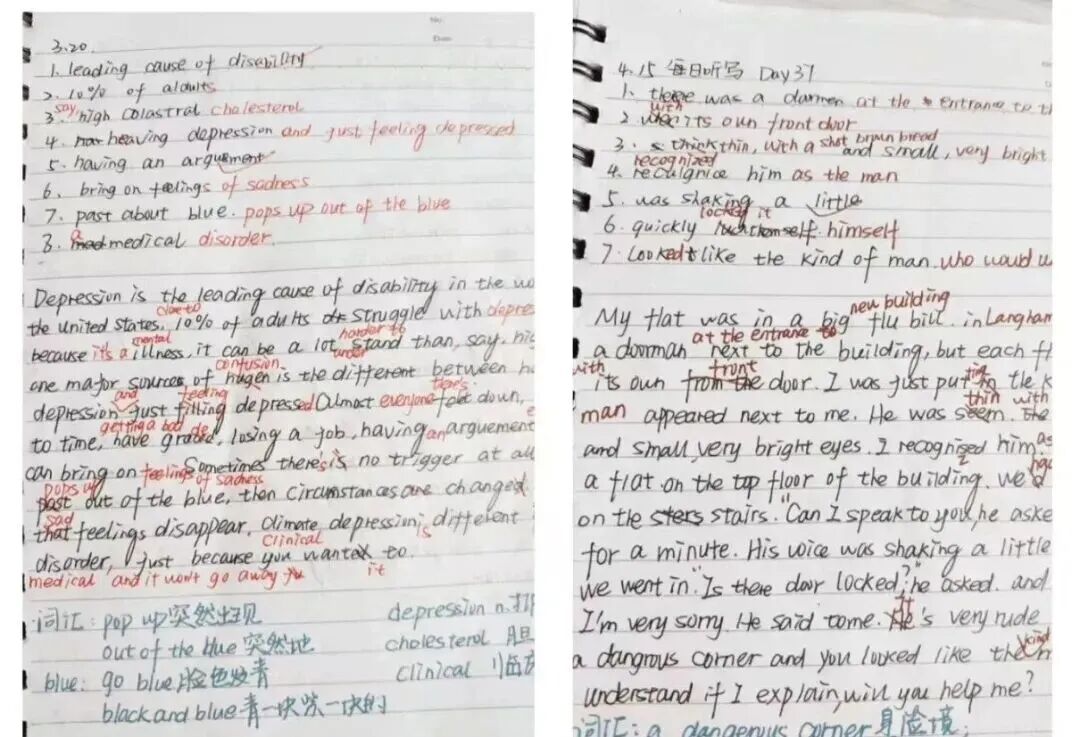 3.20.
1. leading cause of disability
2. 10% of aldults
3. say, high colastral cholesterol
4. heaving depression and just feeling depressed
5. having an arguement
6. bring on feelings of sadness
7. past about blue. pops up out of the blue
8. a medical disorder.
Depression is the leading cause of disability in the wo
the United States, close to 10% of adults struggle with depres
because it's a mental illness, it can be a lot harder to stand than, say, hig
under
one major sources of confusion is the different between ha
depression and just feeling filling depressed. Almost everyone feel down,
to time, getting a bad grade, losing a job, having an arguement
can bring on feelings of sadness Sometimes there's is no trigger at all
pops up past out of the blue, then circumstances are changed
sad that feelings disappear. Clinical Climate depression is different
disorder, just because you wanted to.
medical and it won't go away it
词汇: pop up 突然出现
out of the blue 突然地
blue: go blue 脸色发青
black and blue 青一块紫一块的
depression n.
cholesterol 胆
clinical 临床
4.15 每日听写 Day 37
1. there was a darmen at the entrance to th
2. with its own front door
3. thick thin, with a shot bruin bread and small, very bright
4. recognized reculgnice him as the man
5. was shaking a little
6. quickly locked it himself
7. Looked like the kind of man who would w
My flat was in a big new building flu bill. in Langham
a doorman at the entrance to next to the building, but each fl
with its own front from the door. I was just putting in the k
man appeared next to me. He was thin with seem. the
and small, very bright eyes. I recognised him as
a flat on the top floor of the building. We
on the sters stairs. "Can I speak to you, he aske
for a minute. His voice was shaking a little
we went in. "Is there door locked?" he asked. and
I'm very sorry. He said to me. It He's very rude
a dangrous corner and you looked like the kind
understand if I explain, will you help me?
词汇: a dangerous corner 身险境;